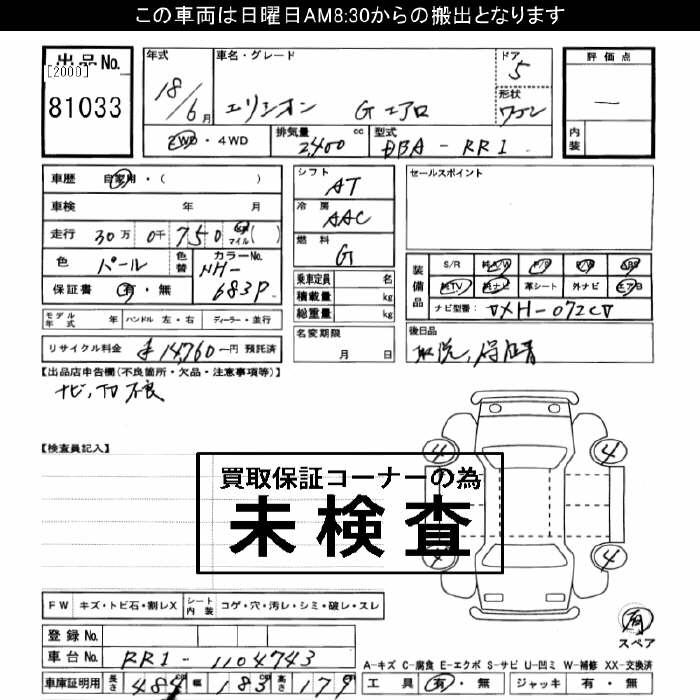 この車両は日曜日AM8:30からの搬出となります
出品No.
[2000]
81033
年式
18/6月
車名・グレード
エリシオン Gエアロ
ドア
5
形状
ワゴン
評価点
—
内装
2WD・4WD
排気量
2400cc
型式
DBA-RR1
車歴 自家用・( )
車検 年 月
走行 30万 0千 750 km マイル( )
色 パール
色替
カラーNo.
NH-683P
保証書 有・無
シフト
AT
冷房
AAC
燃料
G
乗車定員 名
積載量 kg
総重量 kg
セールスポイント
装備品
S/R 純AW P/S P/W ABS
純TV 純ナビ 革シート 外ナビ エアB
ナビ型番: VXH-072CV
モデル年式 年 ハンドル 左・右 ディーラー・並行
リサイクル料金 ¥14,760-円 預託済
名変期限
月 日
後日品
取説,保証書
【出品店申告欄(不良箇所・欠品・注意事項等)】
ナビ,TV不良
【検査員記入】
買取保証コーナーの為
未検査
4
4
4
4
FW キズ・トビ石・割レX シート内装 コゲ・穴・汚レ・シミ・破レ・スレ
有
スペア
登録No.
車台No. RR1-1104743
車庫証明用 長さ 484 幅 183 高さ 179
A-キズ C-腐食 E-エクボ S-サビ U-凹ミ W-補修 XX-交換済
工具 有・無 ジャッキ 有・無